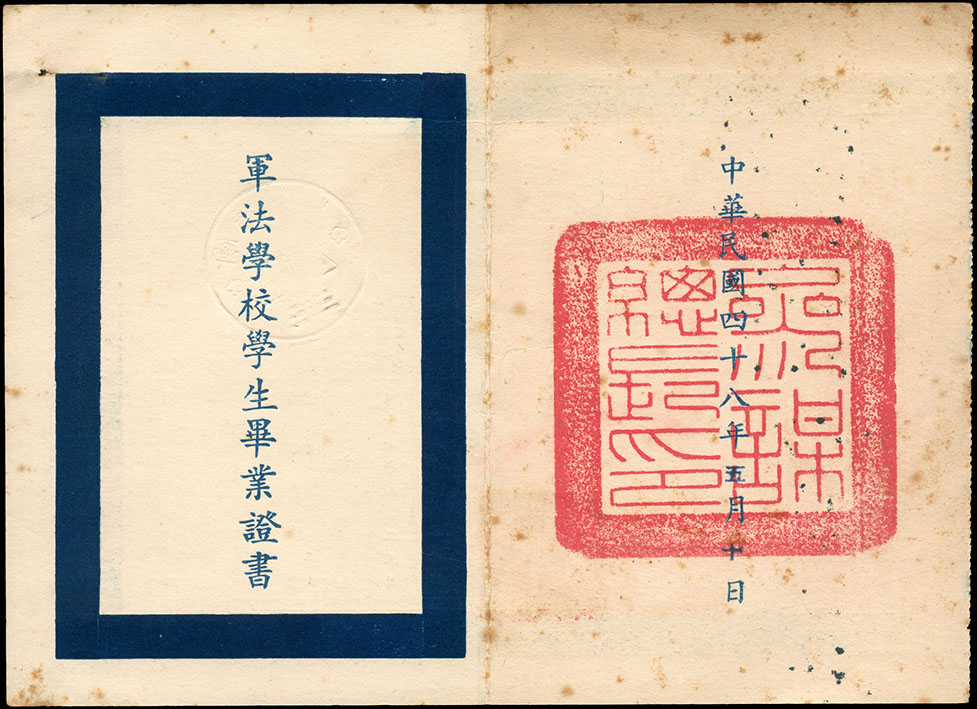 軍法學校學生畢業證書
中華民國四十八年五月十日